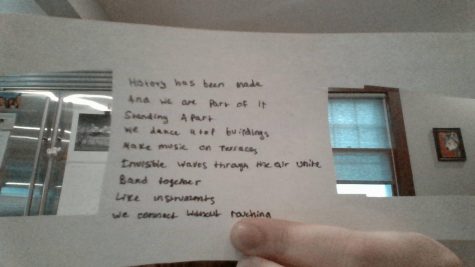 History has been made
And we are part of it
Standing Apart
We dance atop buildings
Make music on Terraces
Invisible waves through the air unite
Band together
Like instruments
We connect without touching